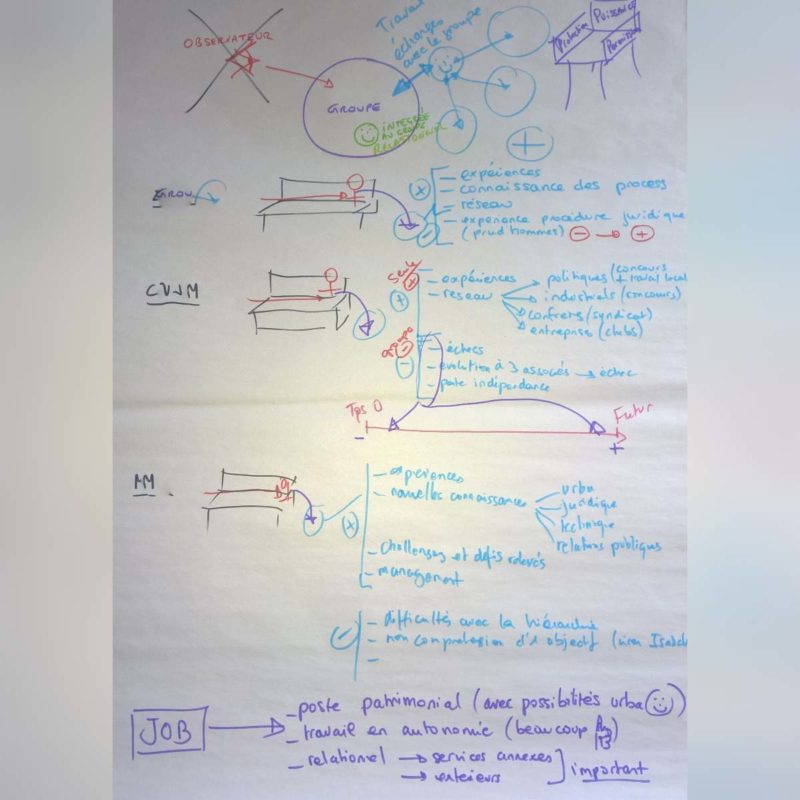 OBSERVATEUR
GROUPE
Travail
échanges
avec le groupe
INTEGRÉE
AU GROUPE
RELATIONNEL
Protection
Puissance
Permission
+
+
- expériences
- connaissance des process
- réseau
- expérience procédure juridique
(prud hommes) - → +
-
CVJM
Seule
+
+
- expériences
- réseau
politiques (concours
+ travail local
industriels (concours)
confrères (syndicat)
entreprise (clubs)
groupe
-
-
- échecs
- évolution à 3 associés → échec
- perte indépendance
Tps 0
Futur
-
+
MM
+
- expériences
- nouvelles connaissances
urba
juridique
technique
relations publiques
- challenges et défis relevés
- management
-
- difficultés avec la hiérarchie
- non compréhension d'1 objectif
-
JOB
- poste patrimonial (avec possibilités urba)
- travail en autonomie (beaucoup)
- relationel → services annexes
→ extérieurs
important